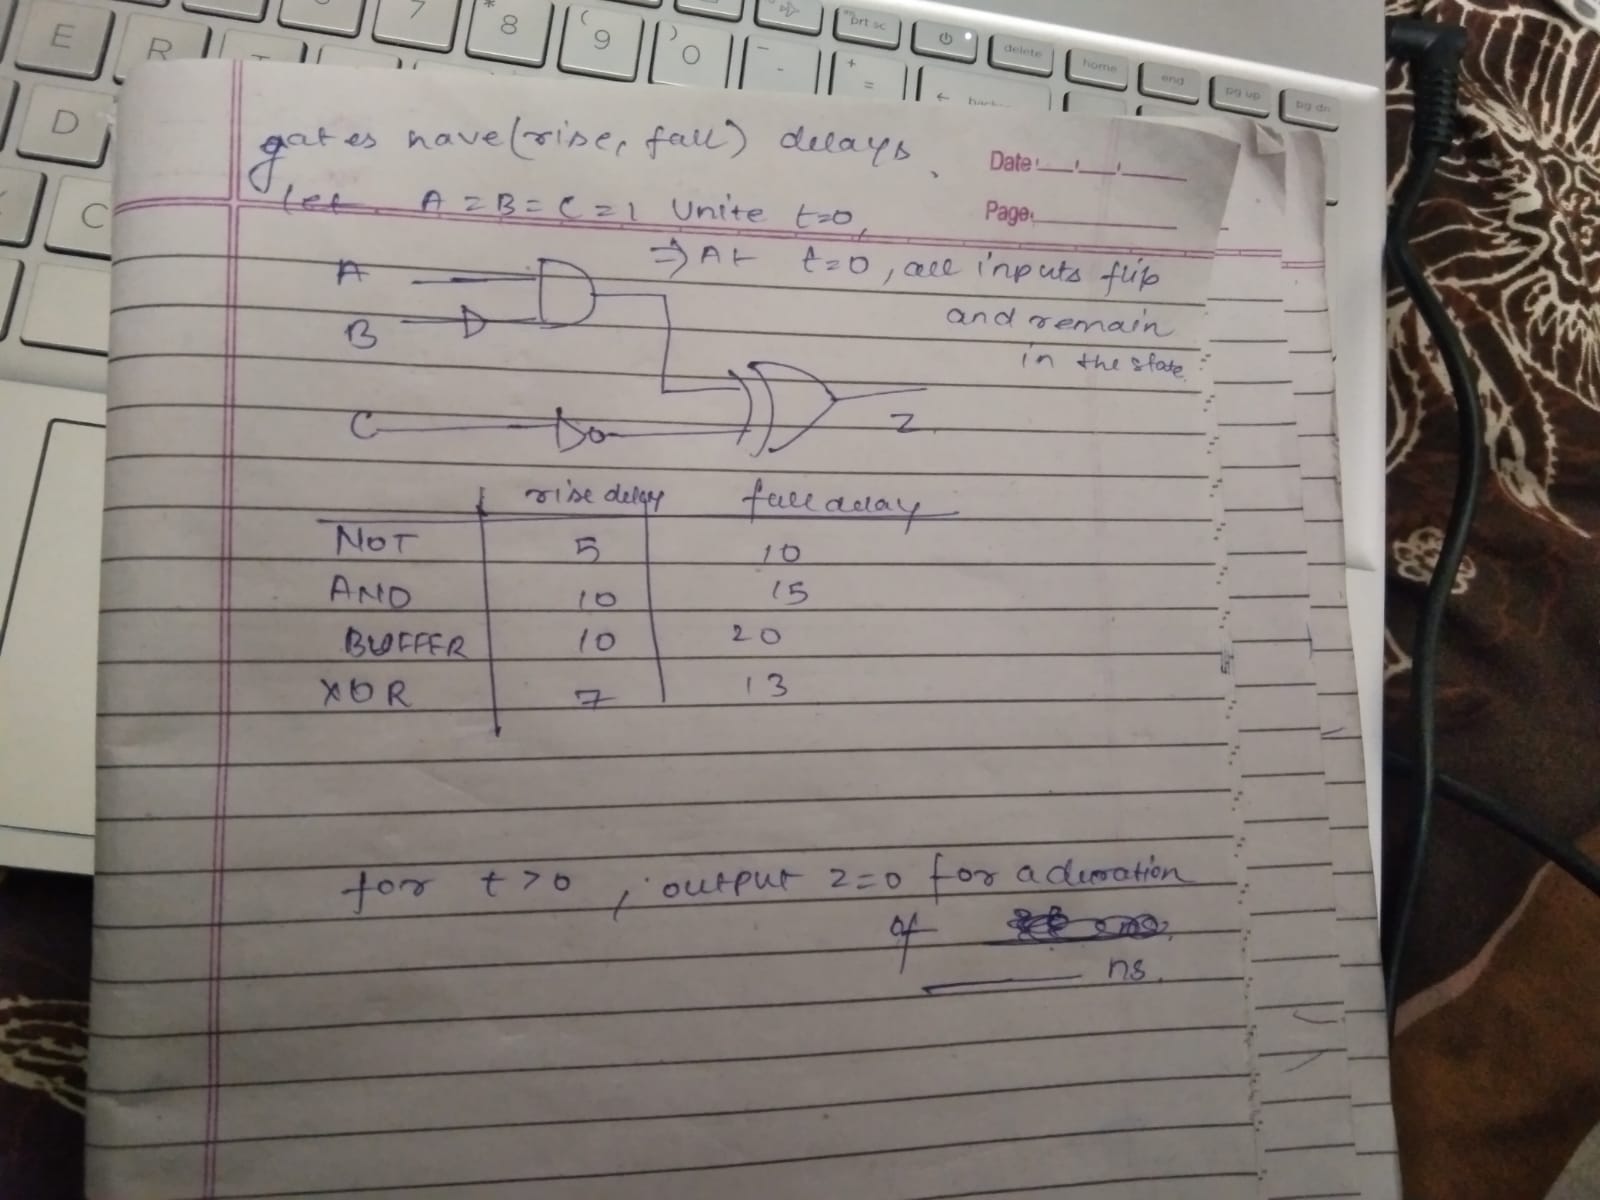 E R 7 * 8 ( 9 ) 0 - + = prt sc delete home end pg up pg dn
D
C
gates have (rise, fall) delays.
Date:
Let A = B = C = 1 Unite t=0,
Page:
⇒ At t=0, all inputs flip
and remain
in the state.
A
B
C
Z
rise delay fall delay
NOT 5 10
AND 10 15
BUFFER 10 20
XOR 7 13
for t>0, output z=0 for a duration
of
____ ns.